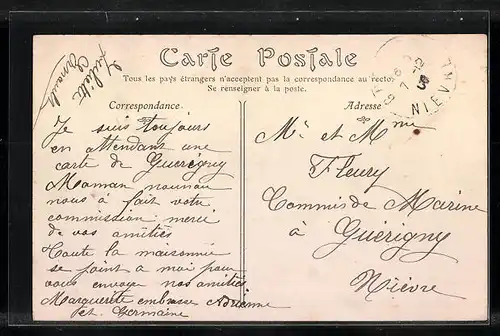 Carte Postale
Tous les pays étrangers n'acceptent pas la correspondance au recto
Se renseigner à la poste.
Correspondance
Adresse
Juliette
Je suis toujours
en attendant une
carte de Guerigny
Maman nounou
nous a fait votre
commission merci
de vos amitiés
Toute la maisonnée
se joint a moi pour
vous envoyer nos amitiés
Marguerite embrasse Adrienne
et Germaine
Mr et Mme
Fleury
Commis de Marine
à Guérigny
Nièvre
NIEVRE